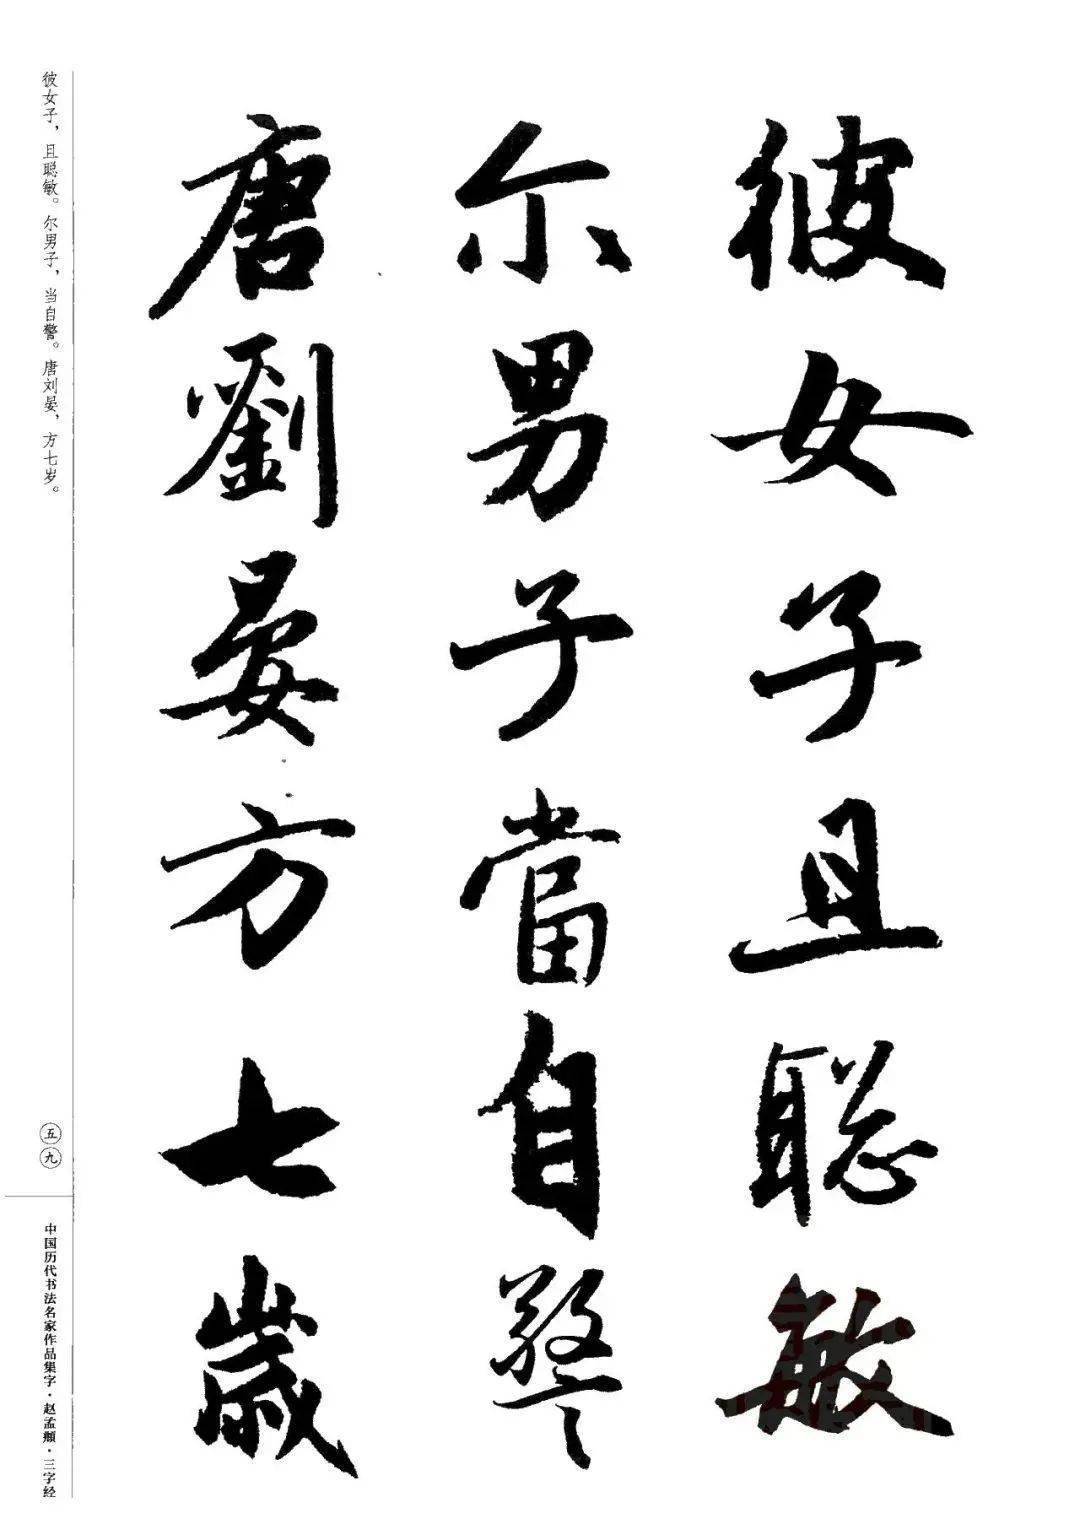 彼女子且聪敏
尔男子當自警
唐劉晏方七歲
彼女子，且聪敏。尔男子，当自警。唐刘晏，方七岁。
五九
中国历代书法名家作品集字·赵孟頫·三字经